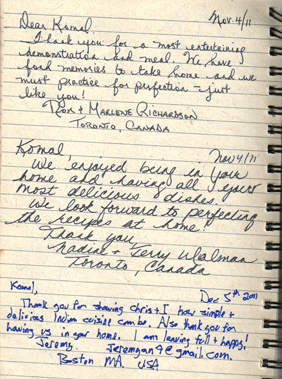 Nov. 4/11
Dear Komal,
Thank you for a most entertaining
demonstration and meal. We have
fond memories to take home and we
must practice for perfection - just
like you!
Ron + Marlene Richardson
Toronto, Canada
Komal, Nov 4/11
We enjoyed being in your
home and having all your
most delicious dishes.
We look forward to perfecting
the recipes at home.
Thank you
Nadine + Terry
Toronto, Canada
Komal, Dec 5th 2011
Thank you for showing Chris + I how simple +
delicious Indian cuisine can be. Also thank you for
having us in your home. I am leaving full + happy!
Jeremy
Boston MA. USA